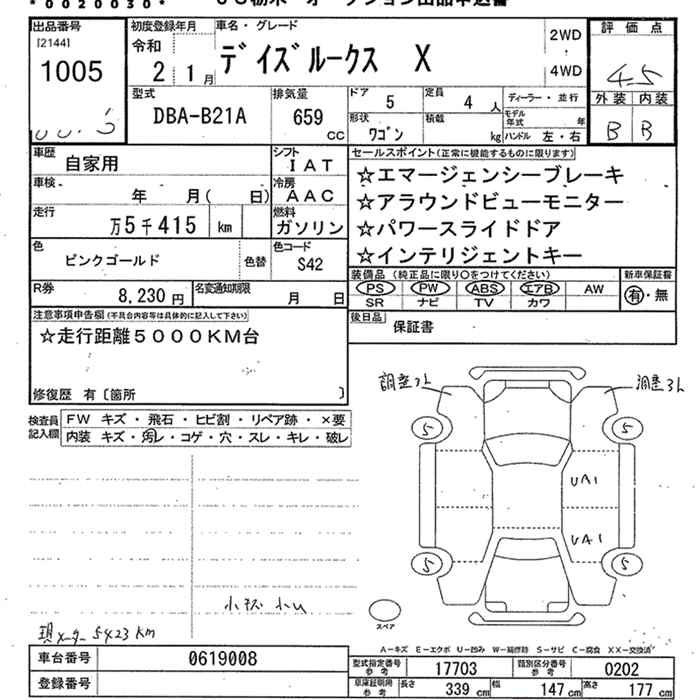 *0020030*
出品番号
[2144]
1005
初度登録年月
令和
2 1月
車名・グレード
デイズルークス X
2WD
4WD
評価点
4.5
外装 内装
B B
型式
DBA-B21A
排気量
659
cc
ドア
5
定員
4 人
ディーラー・並行
形状
ワゴン
積載
kg
モデル年式 年
ハンドル 左・右
車歴
自家用
シフト
IAT
車検
年 月( 日)
冷房
AAC
走行
万5千415 km
燃料
ガソリン
色
ピンクゴールド
色替
色コード
S42
R券
8,230円
名変通知期限
月 日
セールスポイント(正常に機能するものに限ります)
☆エマージェンシーブレーキ
☆アラウンドビューモニター
☆パワースライドドア
☆インテリジェントキー
装備品 (純正品に限り○をつけてください)
PS PW ABS エアB AW
SR ナビ TV カワ
新車保証書
有・無
後日品
保証書
注意事項申告欄(不具合内容等は具体的に記入して下さい)
☆走行距離5000KM台
修復歴 有〔箇所 〕
検査員記入欄
FW キズ・飛石・ヒビ割・リペア跡・×要
内装 キズ・汚レ・コゲ・穴・スレ・キレ・破レ
5 5
UA1
UA1
5 5
スペア
現メーター 5423 km
A-キズ E-エクボ U-凹み W-補修跡 S-サビ C-腐食 XX-交換済
車台番号
0619008
登録番号
型式指定番号 参考
17703
類別区分番号 参考
0202
車庫証明用 参考
長さ 339 cm 幅 147 cm 高さ 177 cm